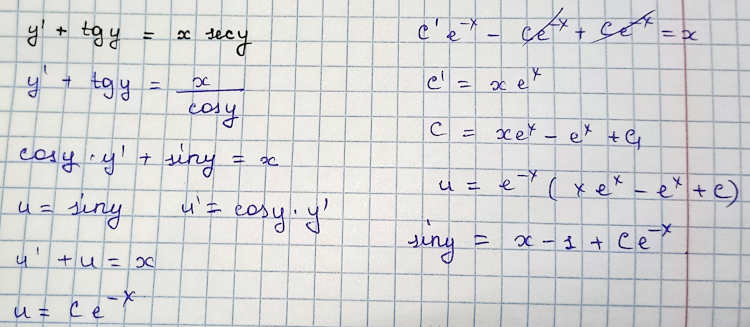 y' + tg y = x sec y
y' + tg y = x / cos y
cos y · y' + sin y = x
u = sin y    u' = cos y · y'
u' + u = x
u = C e^-x
C' e^-x - C e^-x + C e^-x = x
C' = x e^x
C = x e^x - e^x + C₁
u = e^-x ( x e^x - e^x + C )
sin y = x - 1 + C e^-x